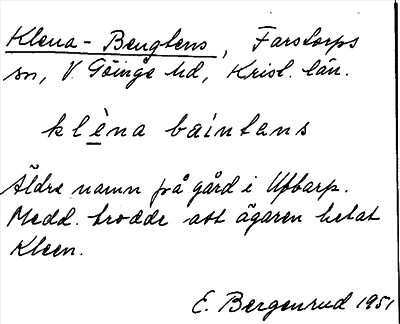 Klena-Bengtens, Farstorps
sn, V. Göinge hd, Krist. län.
klèna baintens
Äldre namn på gård i Ubbarp.
Medd. trodde att ägaren hetat
Kleen.
E. Bergenrud 1951